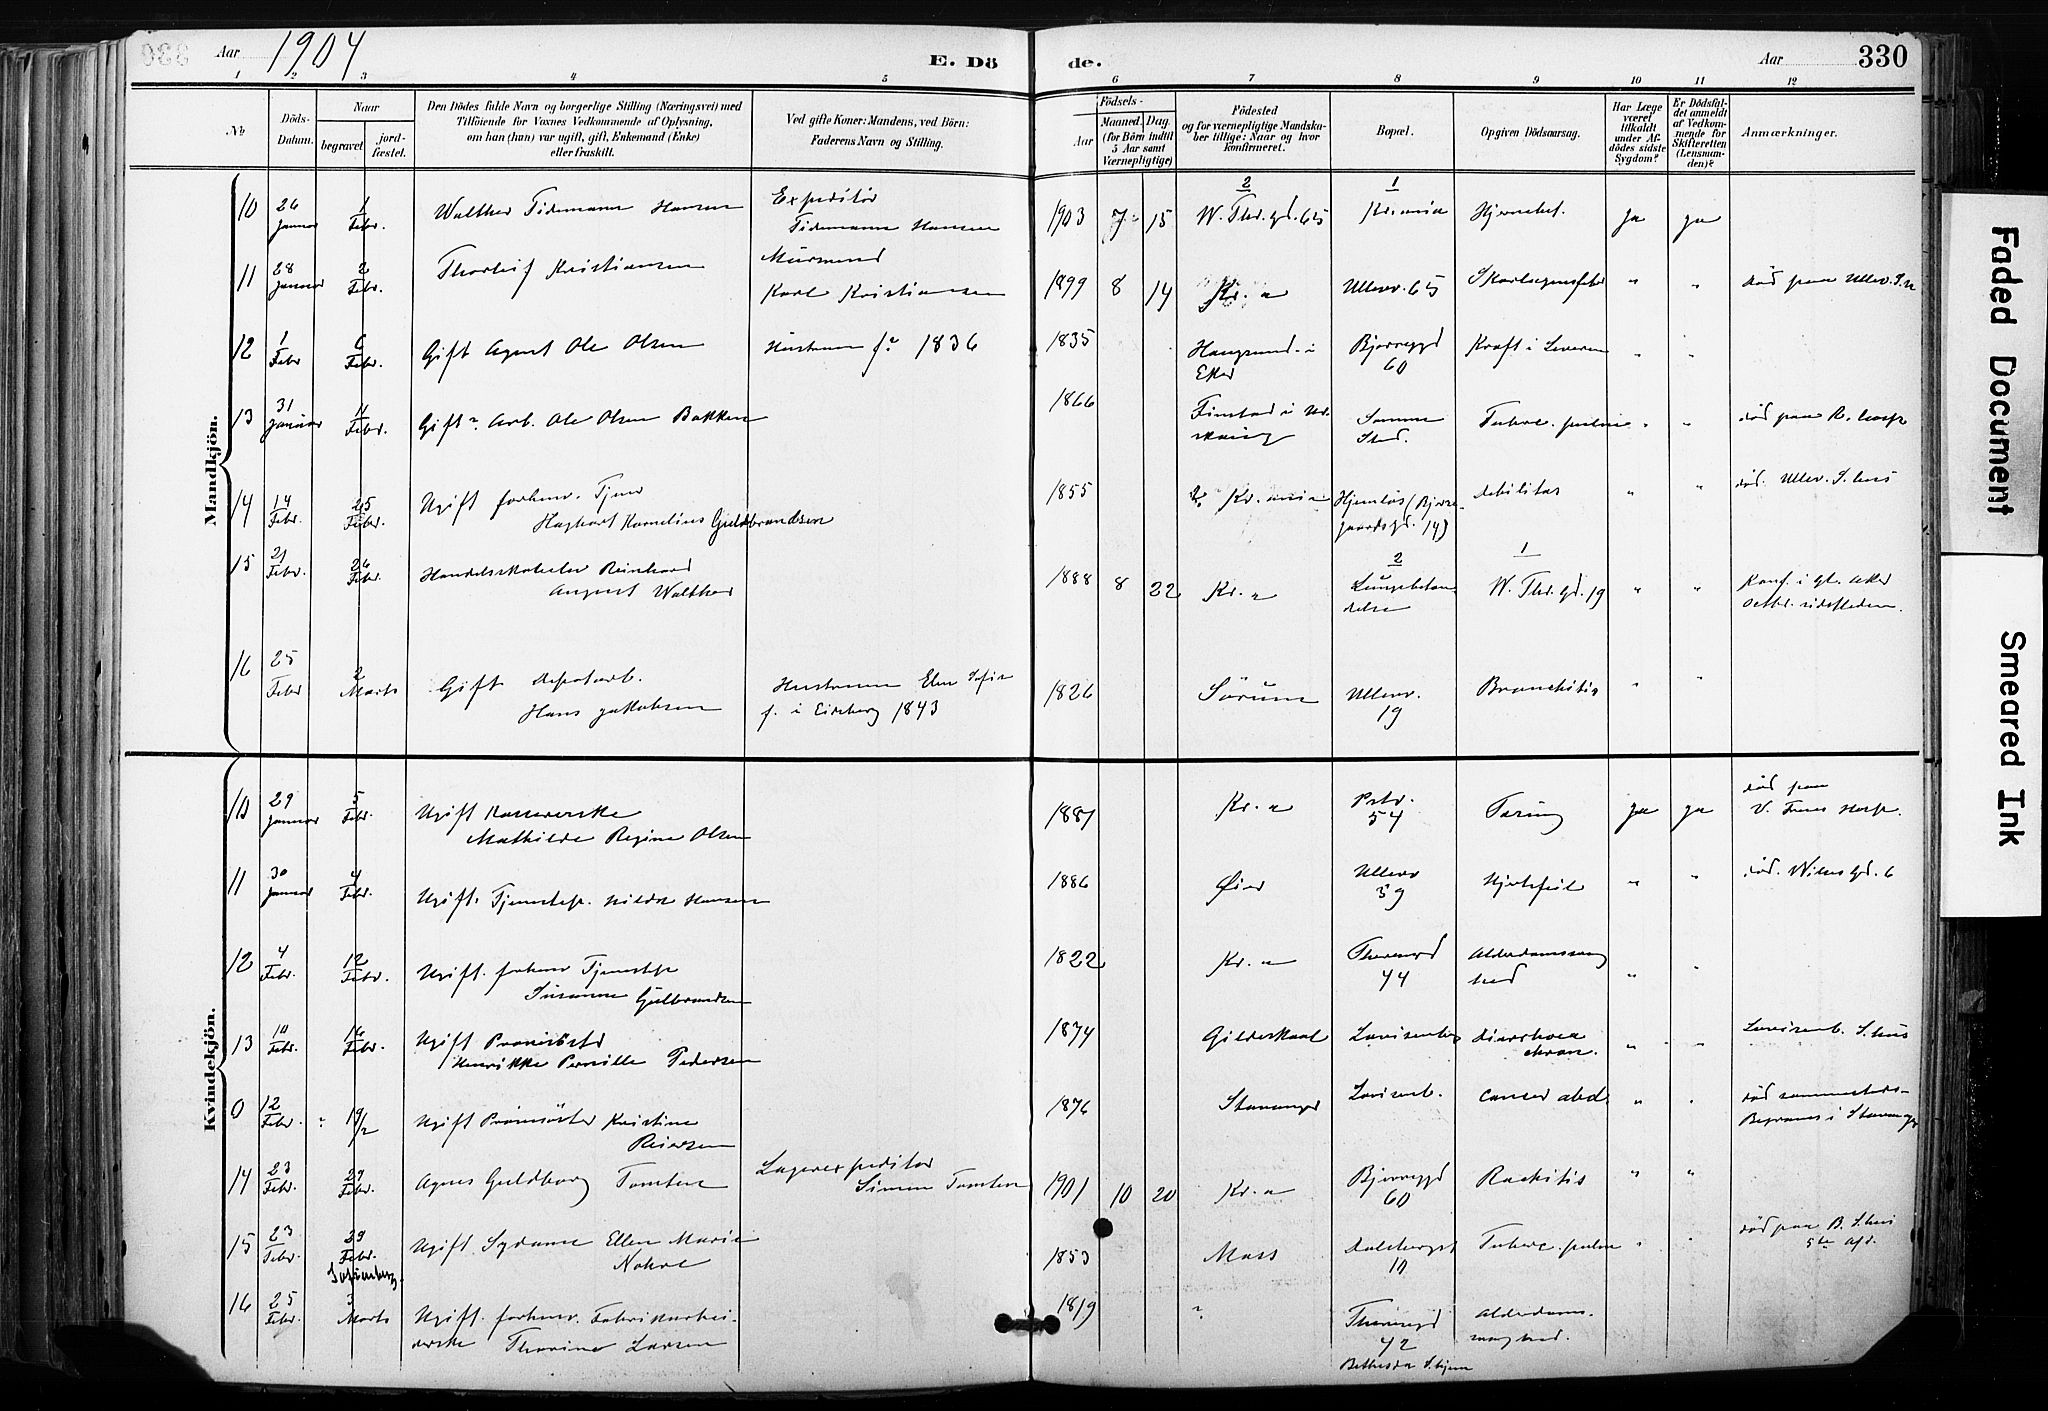 330
Aar 1904
E. Dö
de.
Aar 330
1 2 3 4 5 6 7 8 9 10 11 12
№
Döds-Datum.
Naar
begravet
jord-fæstet.
Den Dödes fulde Navn og borgerlige Stilling (Næringsvei) med
Tilföiende for Voxnes Vedkommende af Oplysning,
om han (hun) var ugift, gift, Enkemand (Enke)
eller fraskilt.
Ved gifte Koner: Mandens, ved Börn:
Faderens Navn og Stilling.
Födsels-
Aar
Maaned. Dag.
(for Börn indtil
5 Aar samt
Værnepligtige)
Födested
og for værnepligtige Mandska-
ber tillige: Naar og hvor
konfirmeret.
Bopæl.
Opgiven Dödsaarsag.
Har Læge
været
tilkaldt
under Af-
dödes sidste
Sygdom?
Er Dödsfal-
det anmeldt
af Vedkom-
mende for
Skifteretten
(Lensman-
den)?
Anmærkninger.
Mandkjön.
10 26 Januar 1 Febr. Walther Tidemann Hansen Expeditör Tidemann Hansen 1903 7 15 2 W. Thr. gd. 65 1 Kr.ania Ja ja
11 28 Januar 2 Febr. Thorleif Kristiansen Murmand Karl Kristiansen 1899 8 14 Kr.a Ullevv. 65 Skarlagensfeber " " död paa Ullev. S.
12 1 Febr 6 Febr. Gift Agent Ole Olsen Hustruen f. 1836 1835 Haugsund i Eker Bjerregd 60 Kræft i Leveren " "
13 31 Januar 11 Febr. Gift Arb. Ole Olsen Bakken 1866 Samme Sted. Tuberc. pulm " " död paa R. hosp
14 14 Febr. 25 Febr. Ugift forhenv. Tjener
Hagbart Kornelius Guldbrandsen 1855 Kr.ania Hjemlös (Bjerregaardsgd. 14) debilitas " " död. Ullev. S.hus
15 21 Febr. 26 Febr. Handelsskoleelev Reinhard
August Walther 1888 8 22 Kr.a 2 Lungebetændelse 1 W. Thr. gd. 19 " " Konf. i gl. Aker
Octbr. sidstleden.
16 25 Febr 2 Marts Gift Depotarb.
Hans Jakobsen Hustruen Elen Sofie
f. i Eidsberg 1843 1826 Sörum Ullevv. 19 Bronchitis " "
Kvindekjön.
10 29 Januar 5 Febr. Ugift
Mathilde Regine Olsen 1881 Kr.a 54 Tæring ja ja död paa
V. Frues Hosp.
11 30 Januar 4 Febr. Ugift. Tjenestep. Hilda Hansen 1886 Öier Ullevv 59 Hjertefeil " " död. Wilses gd. 6
12 4 Febr. 12 Febr. Ugift. forhenv Tjenestep
Susanne Gulbrandsen 1822 Kr.a Theresegd 44 Alderdomssvaghed " "
13 10 Febr. 16 Febr. Ugift Prövesöster
Henrikke Pernille Pedersen 1874 Gildeskaal Lovisenberg diarrhoea chron. " " Lovisenb. S.hus
0 12 Febr. " 19/2 Ugift Prövesöster Kristine
Reiersen 1876 Stavanger Lovisenb. Cancer abd. " " död sammesteds
Begraves i Stavanger
14 23 Febr. 29 Febr. Agnes Guldborg Tomter Lagerexpeditör
Simen Tomter 1901 10 20 Kr.a Bjerregd 60 Rachitis " "
15 23 Febr. 29 Febr. Ugift Sydame Ellen Marie
1853 Moss Dalsbergst 10 Tuberc. pulm " " död paa B. S.hus
5te Afd.
16 25 Febr. 3 Marts Ugift. forhenv. Fabrikarbei-
derske Thorine Larsen 1819 " Theresegd 42
Bethesda S.hjem Alderdoms-
svaghed.
Faded Document
Smeared Ink